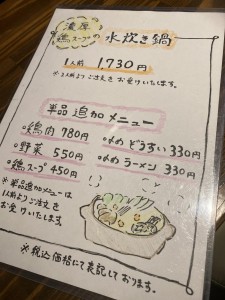 濃厚
鶏スープの 水炊き鍋
1人前 1730円
※2人前よりご注文を お受けいたします。
単品 追加メニュー
・鶏肉 780円
・野菜 550円
・鶏スープ 450円
・〆め ぞうすい 330円
・〆め ラーメン 330円
※単品追加メニューは
1人前よりご注文を
お受けいたします
※税込価格にて表記しております。